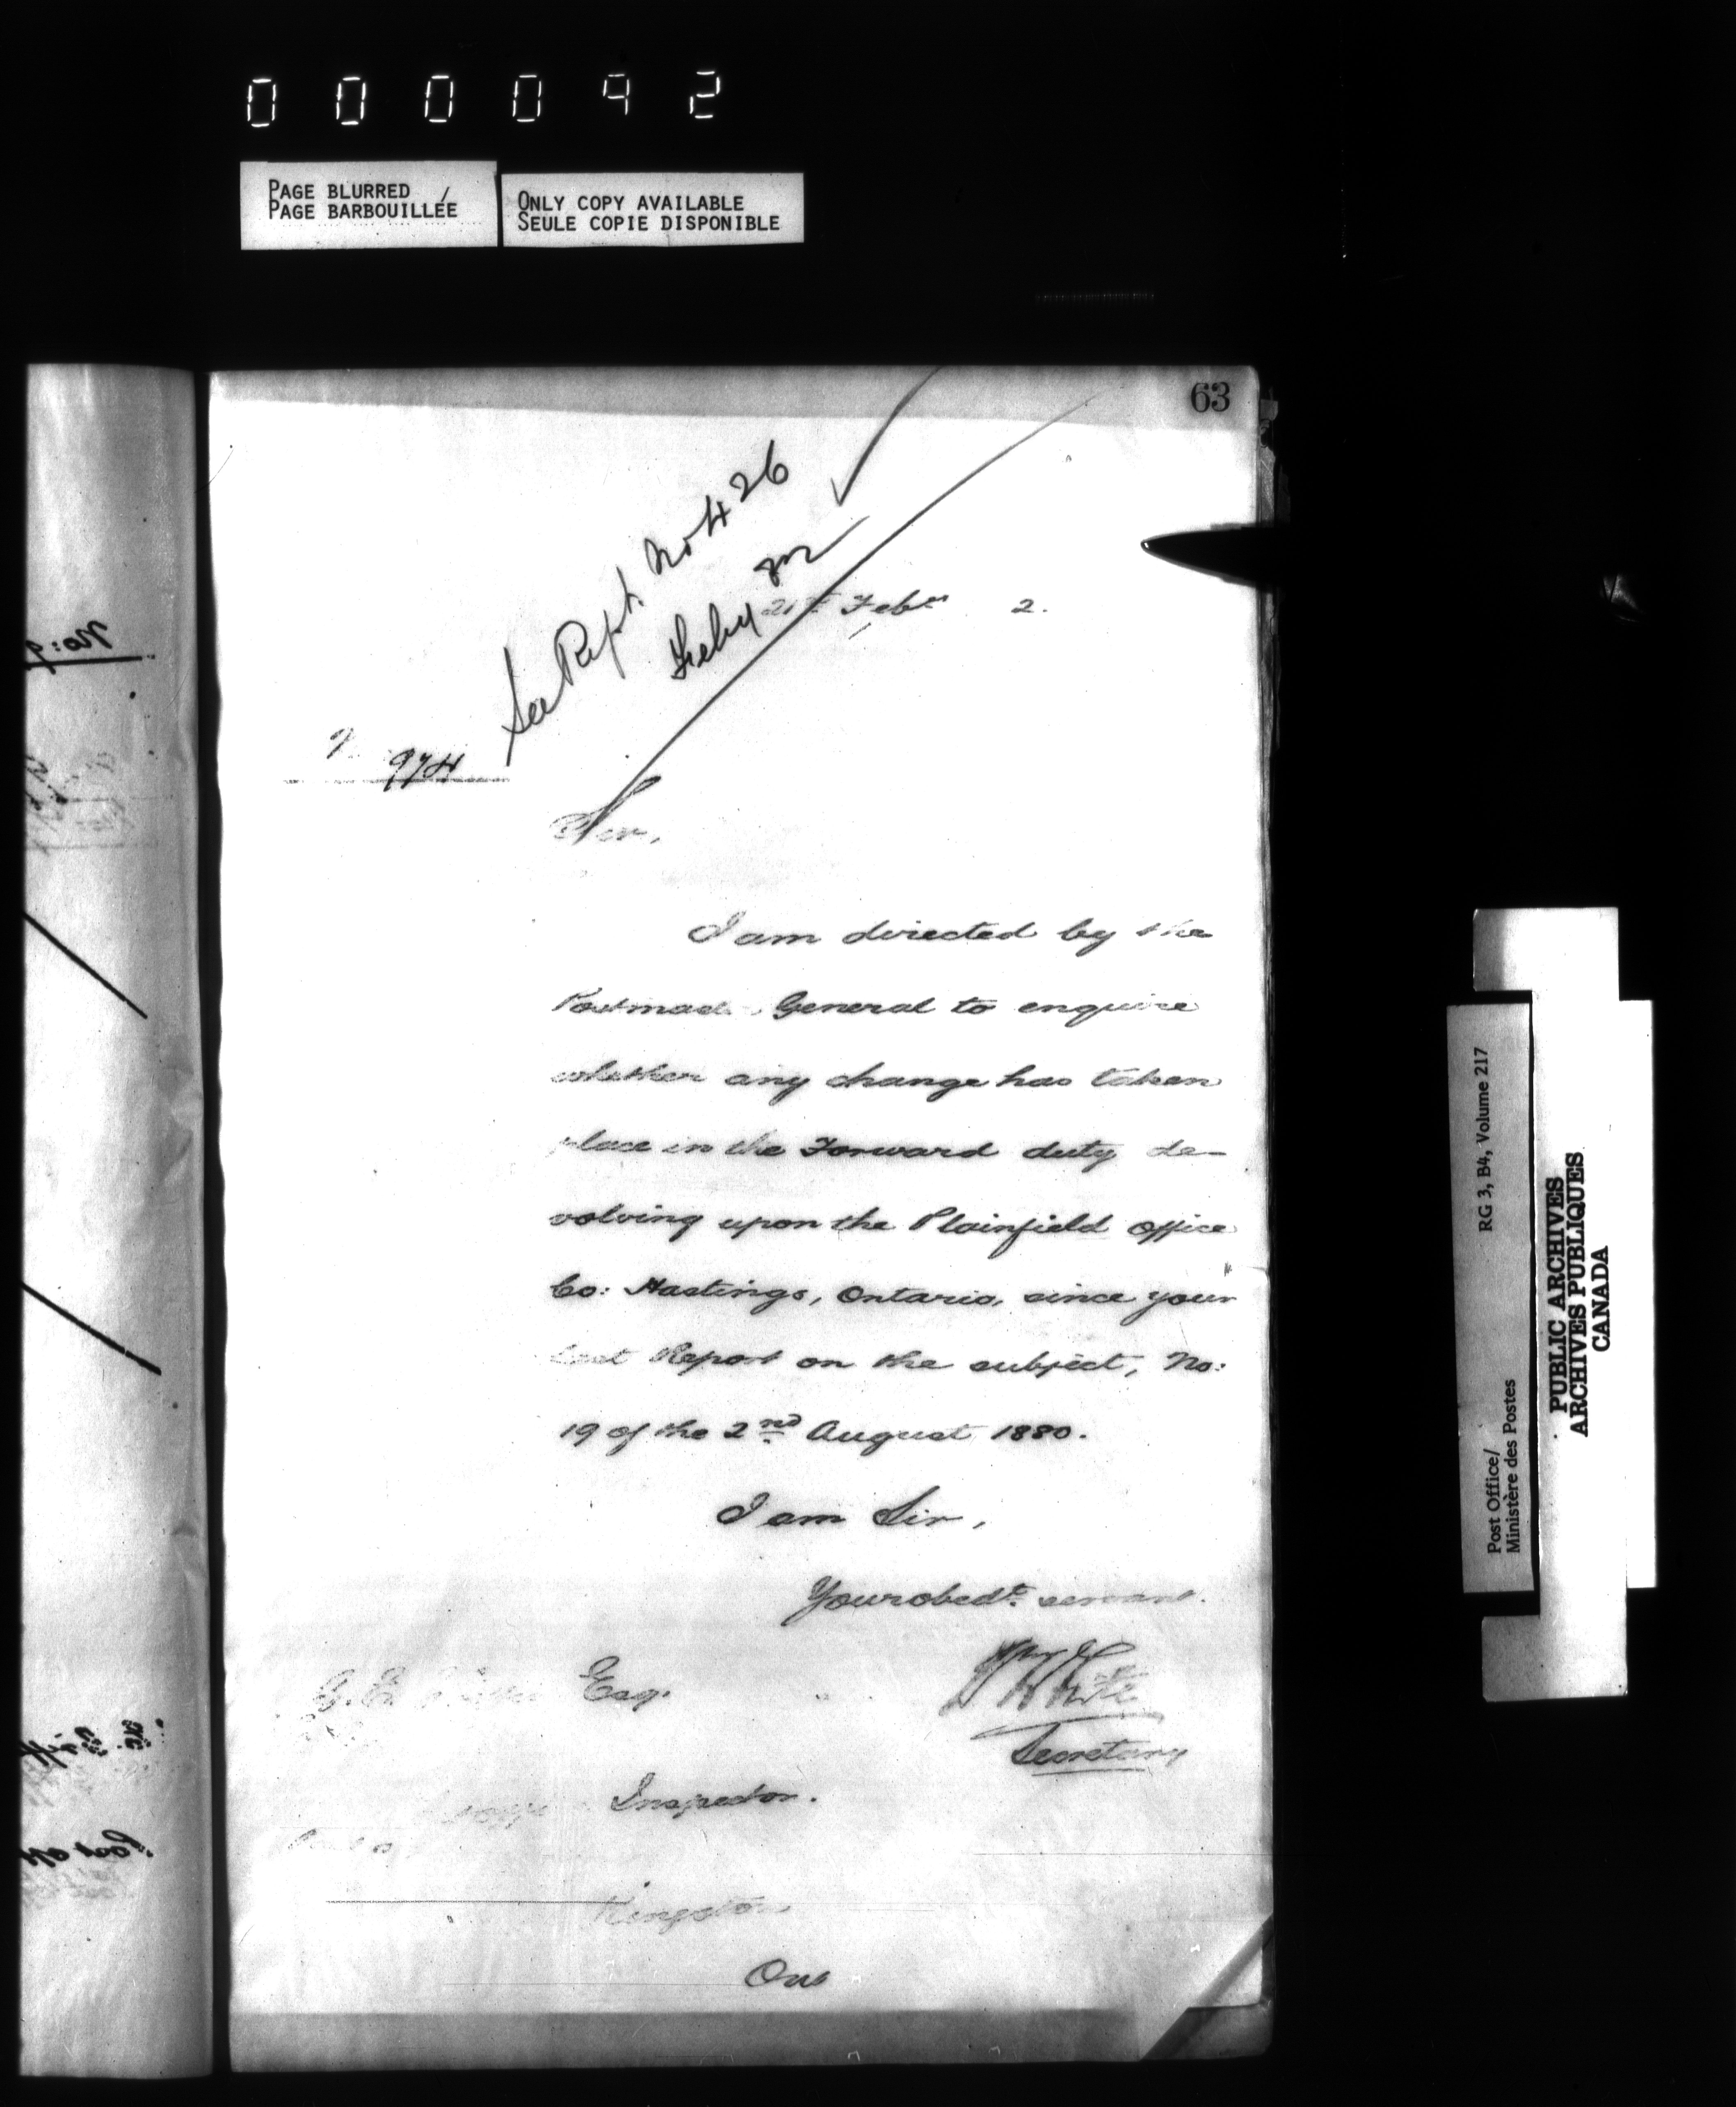 000092
PAGE BLURRED /
PAGE BARBOUILLÉE
ONLY COPY AVAILABLE
SEULE COPIE DISPONIBLE
63
See Rept. No 426
Feby
21st Febry 2.
974
Sir,
I am directed by the
Postmas General to enquire
whether any change has taken
place in the Forward duty de-
volving upon the Plainfield office
Co: Hastings, Ontario, since your
last Report on the subject, No:
19 of the 2nd August 1880.
I am Sir,
Your obedt. servant.
G. E. Esq.
Wm White
Secretary
Inspector.
Kingston
Ont
Post Office/
Ministère des Postes
RG 3, B4, Volume 217
PUBLIC ARCHIVES
ARCHIVES PUBLIQUES
CANADA